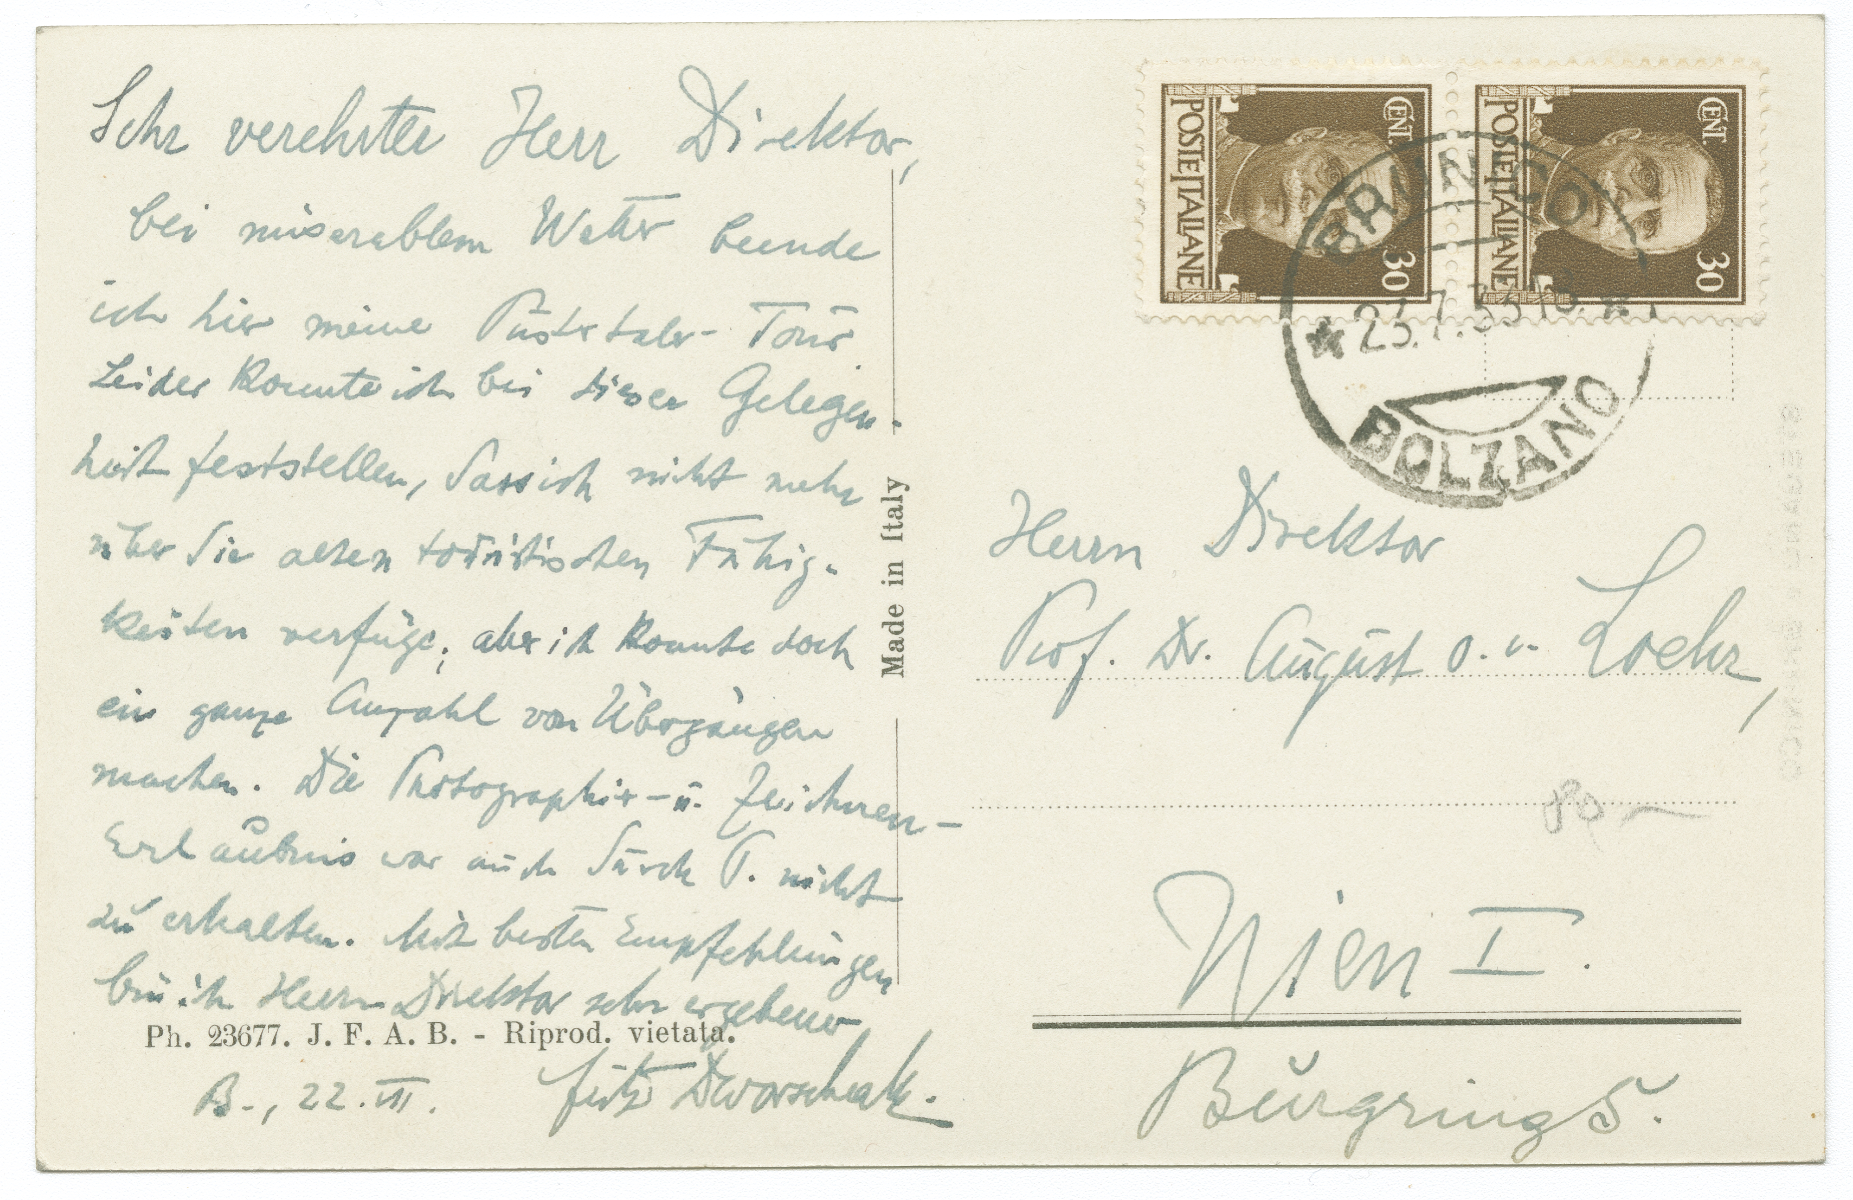 Sehr verehrter Herr Direktor,
bei miserablem Wetter beende
ich hier meine Pustertaler-Tour.
Leider konnte ich bei dieser Gelegen-
heit feststellen, dass ich nicht mehr
über die alten touristischen Fähig-
keiten verfüge, aber ich konnte doch
eine ganze Anzahl von Übergängen
machen. Die Photographier- u. Zeichnen-
Erlaubnis war auch durch P. nicht
zu erhalten. Mit besten Empfehlungen
bin ich Herrn Direktor sehr ergebener
Ph. 23677. J. F. A. B. - Riprod. vietata.
Fritz Dworschak.
B., 22.VII.
Made in Italy
CENT. 30
POSTE ITALIANE
CENT. 30
POSTE ITALIANE
BRUNICO
BOLZANO
Herrn Direktor
Prof. Dr. August O. v. Loehr,
Wien I.
Burgring 5.